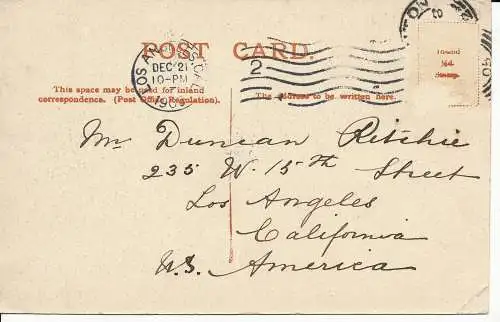 POST CARD.
LOS
DEC 21
10-PM
190
2
TON
Inland
½d
Stamp.
This space may be used for inland
correspondence. (Post Office Regulation).
The address to be written here.
Mr Duncan Ritchie
235 W. 15th Street
Los Angeles
California
U.S. America